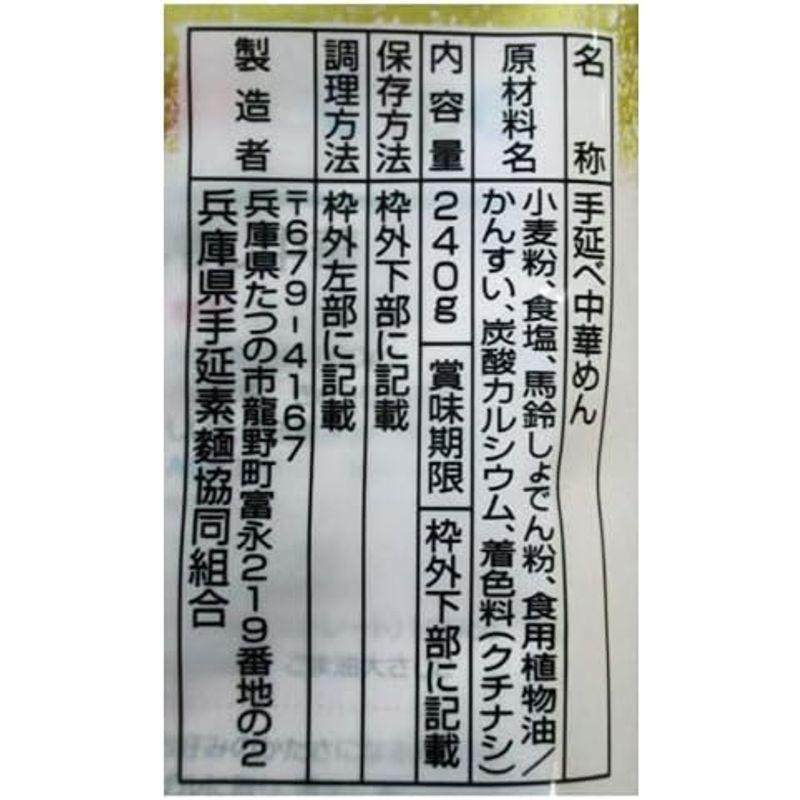 名称
手延べ中華めん
原材料名
小麦粉、食塩、馬鈴しょでん粉、食用植物油/
かんすい、炭酸カルシウム、着色料(クチナシ)
内容量
240g
賞味期限
枠外下部に記載
保存方法
枠外下部に記載
調理方法
枠外左部に記載
製造者
〒679-4167
兵庫県たつの市龍野町富永219番地の2
兵庫県手延素麺協同組合